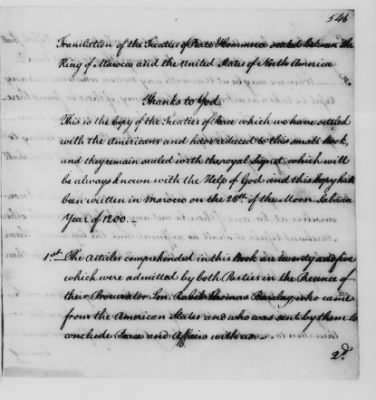 546
Translation of the Treaties of Peace & Commerce settled between the
King of Marocco and the United States of North America
Thanks to God
This is the Copy of the Treaties of Peace which we have settled
with the Americans and have reduced to this small Book,
and they remain sealed with the royal Signet, which will
be always known with the Help of God and this Copy hath
been written in Marocco on the 26th. of the Moon Sabain
Year of 1200.—
1st. The Articles comprehended in this Book are twenty and five
which were admitted by both Parties in the Presence of
their Procurator Thomas Barclay, who came
from the American States and who was sent by them to
conclude Peace and Affairs with us.—
2d.